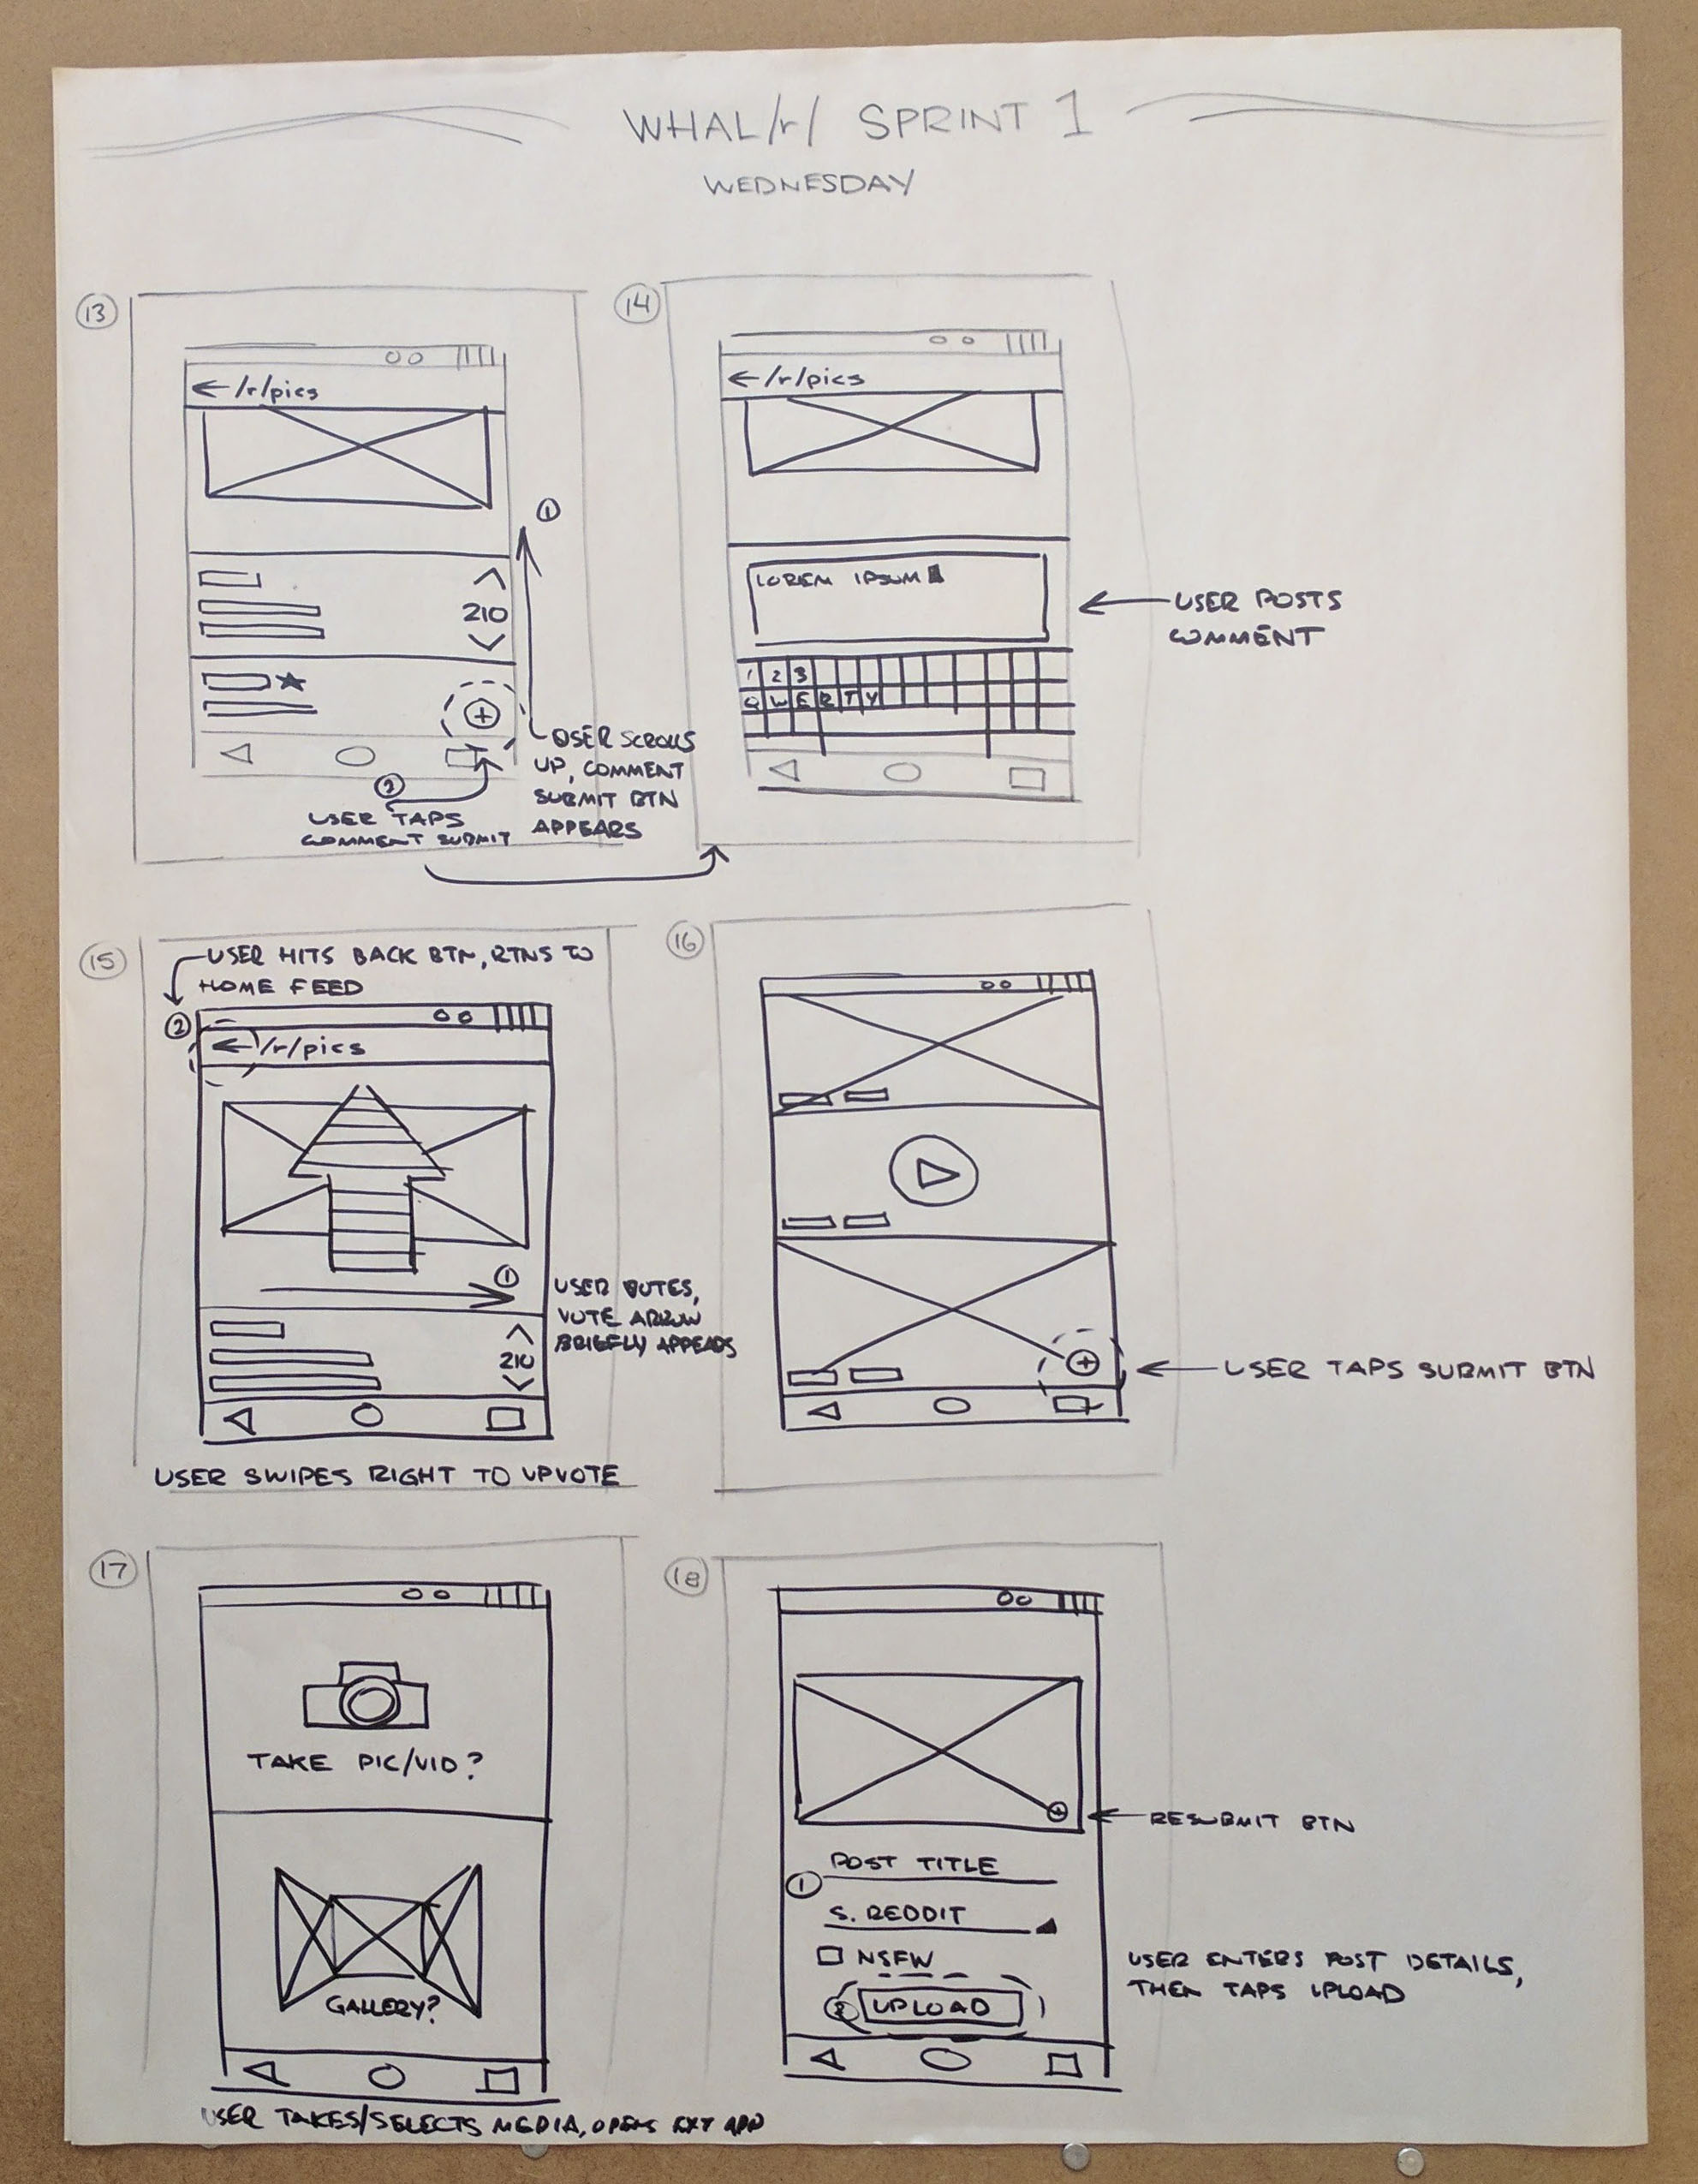 WHAL/r/ SPRINT 1
WEDNESDAY
13
←/r/pics
1
210
USER SCROLLS
UP, COMMENT
SUBMIT BTN
APPEARS
2
USER TAPS
COMMENT SUBMIT
14
←/r/pics
LOREM IPSUM
1 2 3
Q W E R T Y
USER POSTS
COMMENT
15
USER HITS BACK BTN, RTNS TO
HOME FEED
2
←/r/pics
1
USER VOTES,
VOTE ARROW
BRIEFLY APPEARS
210
USER SWIPES RIGHT TO UPVOTE
16
USER TAPS SUBMIT BTN
17
TAKE PIC/VID?
GALLERY?
USER TAKES/SELECTS MEDIA, OPENS EXT APP
18
RESUBMIT BTN
POST TITLE
1
S. REDDIT
NSFW
2 UPLOAD
USER ENTERS POST DETAILS,
THEN TAPS UPLOAD